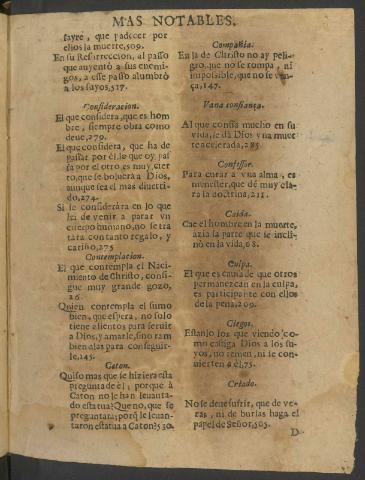 MAS NOTABLES.
sayre, que padecer por
ellos la muerte, 509.
En su Resurreccion, al passo
que auyentò a sus enemi-
gos, a esse passo alumbrò
a los suyos, 517.
Consideracion.
El que considera, que es hom
bre, siempre obra como
deue, 279.
El que considera, que ha de
passar por èl, lo que oy pas-
sa por el otro, es muy cier
to, que se boluerà a Dios,
aunque sea el mas diuerti-
do, 274.
Si se consideràra en lo que
ha de venir a parar vn
cuerpo humano, no se tra
tàra con tanto regalo, y
cariño, 275
Contemplacion.
El que contempla el Naci-
miento de Christo, consi-
gue muy grande gozo,
26.
Quien contempla el sumo
bien, que espera, no solo
tiene alientos para seruir
a Dios, y amarle, sino tam
bien alas para conseguir-
le, 245.
Caton.
Quiso mas que se hiziera esta
pregunta de èl, porque à
Caton no le han leuanta-
do estatua? Que no, que se
preguntàra; porq̃ le leuan-
taron estatua a Caton? 530.
Compañia.
En la de Christo no ay peli-
gro, que no se rompa, ni
impossible, que no se ven-
ça, 147.
Vana confiança.
Al que confia mucho en su
vida, le dà Dios vna muer
te acelerada, 285.
Confessor.
Para curar a vna alma, es
menester, que dè muy cla-
ra la doctrina, 211.
Caida.
Cae el hombre en la muerte,
àzia la parte que se incli-
nò en la vida, 68.
Culpa.
El que es causa de que otros
permanezcan en la culpa,
es participante con ellos
de la pena, 209.
Ciegos.
Estàn los que viendo como
castiga Dios a los su-
yos, no temen, ni se con-
uierten a èl, 75.
Criado.
No se deue sufrir, que de ve-
ras, ni de burlas haga el
papel de Señor, 505.
D